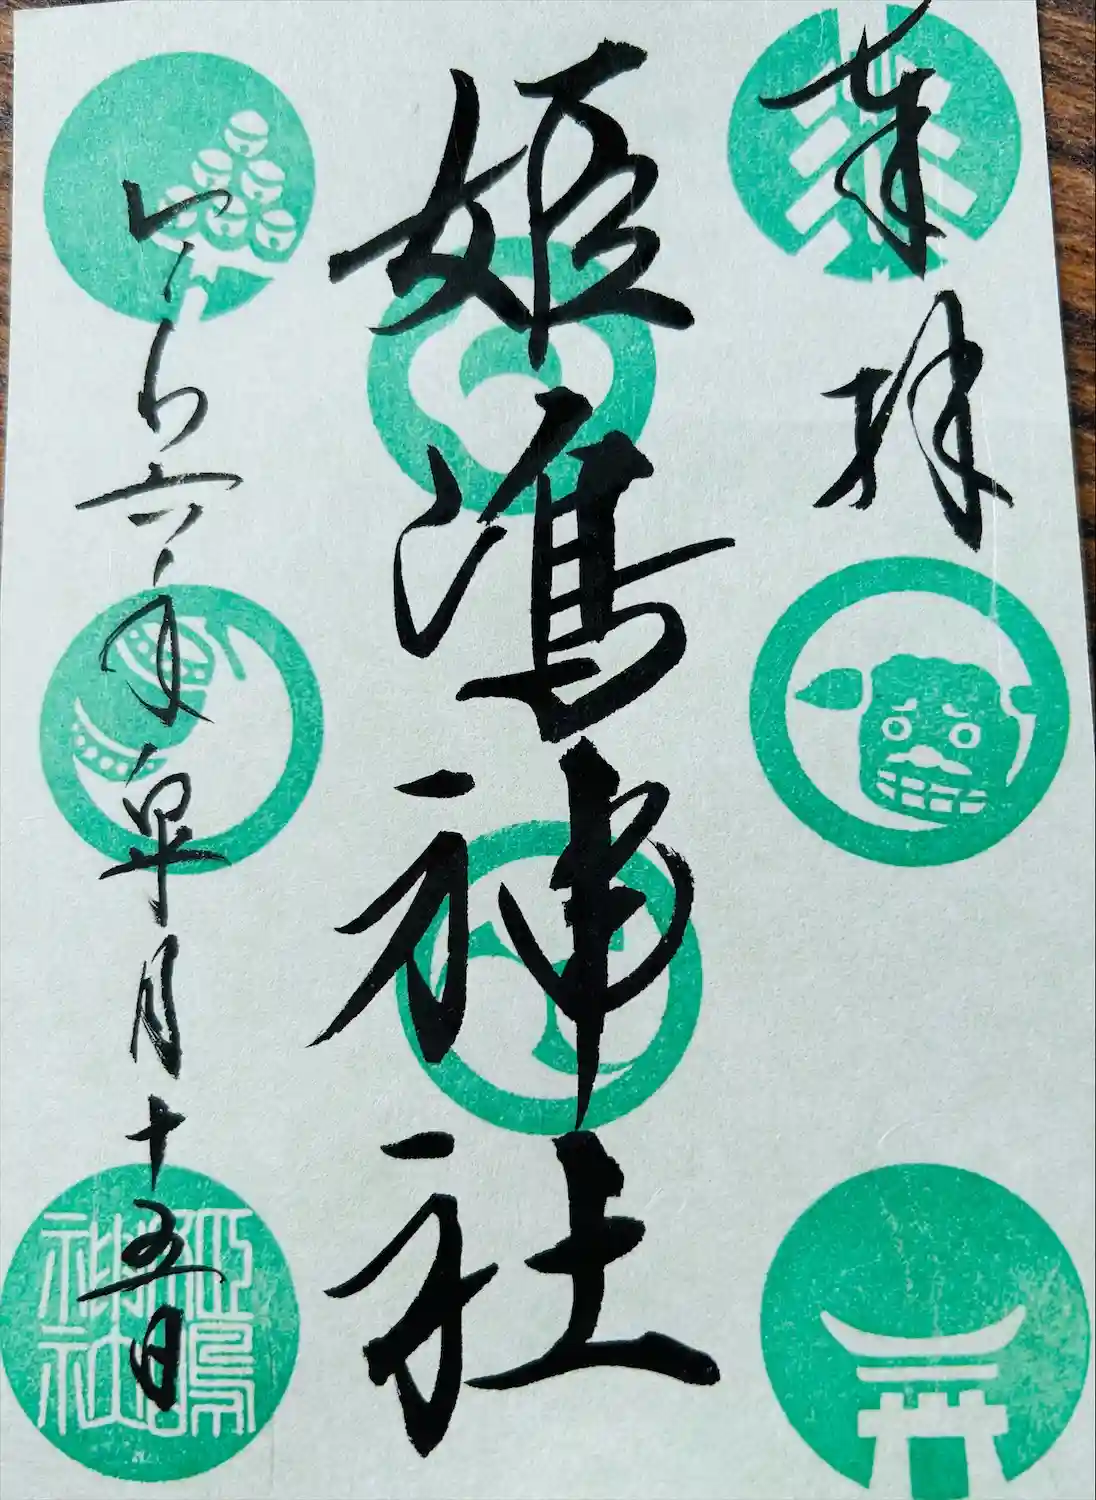 奉拝
姫嶋神社
令和六年皐月十五日
姫嶋
神社